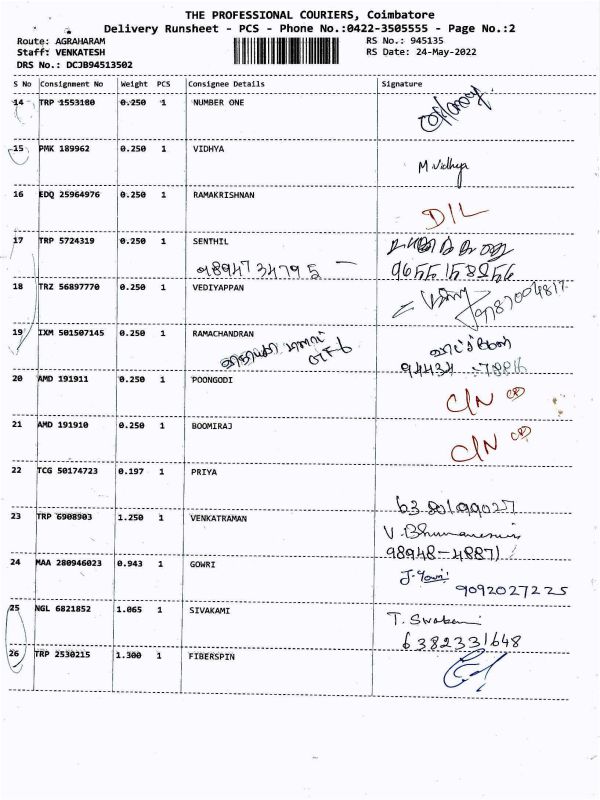 THE PROFESSIONAL COURIERS, Coimbatore
Delivery Runsheet - PCS - Phone No.:0422-3505555 - Page No.:2
Route: AGRAHARAM RS No.: 945135
Staff: VENKATESH RS Date: 24-May-2022
DRS No.: DCJB94513502
S No Consignment No Weight PCS Consignee Details Signature
14 TRP 1553180 0.250 1 NUMBER ONE
15 PMK 189962 0.250 1 VIDHYA
M Vidhya
16 EDQ 25964976 0.250 1 RAMAKRISHNAN
D/L
17 TRP 5724319 0.250 1 SENTHIL
9894734795
18 TRZ 56897770 0.250 1 VEDIYAPPAN
19 IXM 501507145 0.250 1 RAMACHANDRAN
94434 - 78816
20 AMD 191911 0.250 1 POONGODI
C/N
21 AMD 191910 0.250 1 BOOMIRAJ
C/N
22 TCG 50174723 0.197 1 PRIYA
6380199027
23 TRP 6908903 1.250 1 VENKATRAMAN
98948-48871
24 MAA 280946023 0.943 1 GOWRI
9092027225
25 NGL 6821852 1.065 1 SIVAKAMI
6382331648
26 TRP 2530215 1.300 1 FIBERSPIN